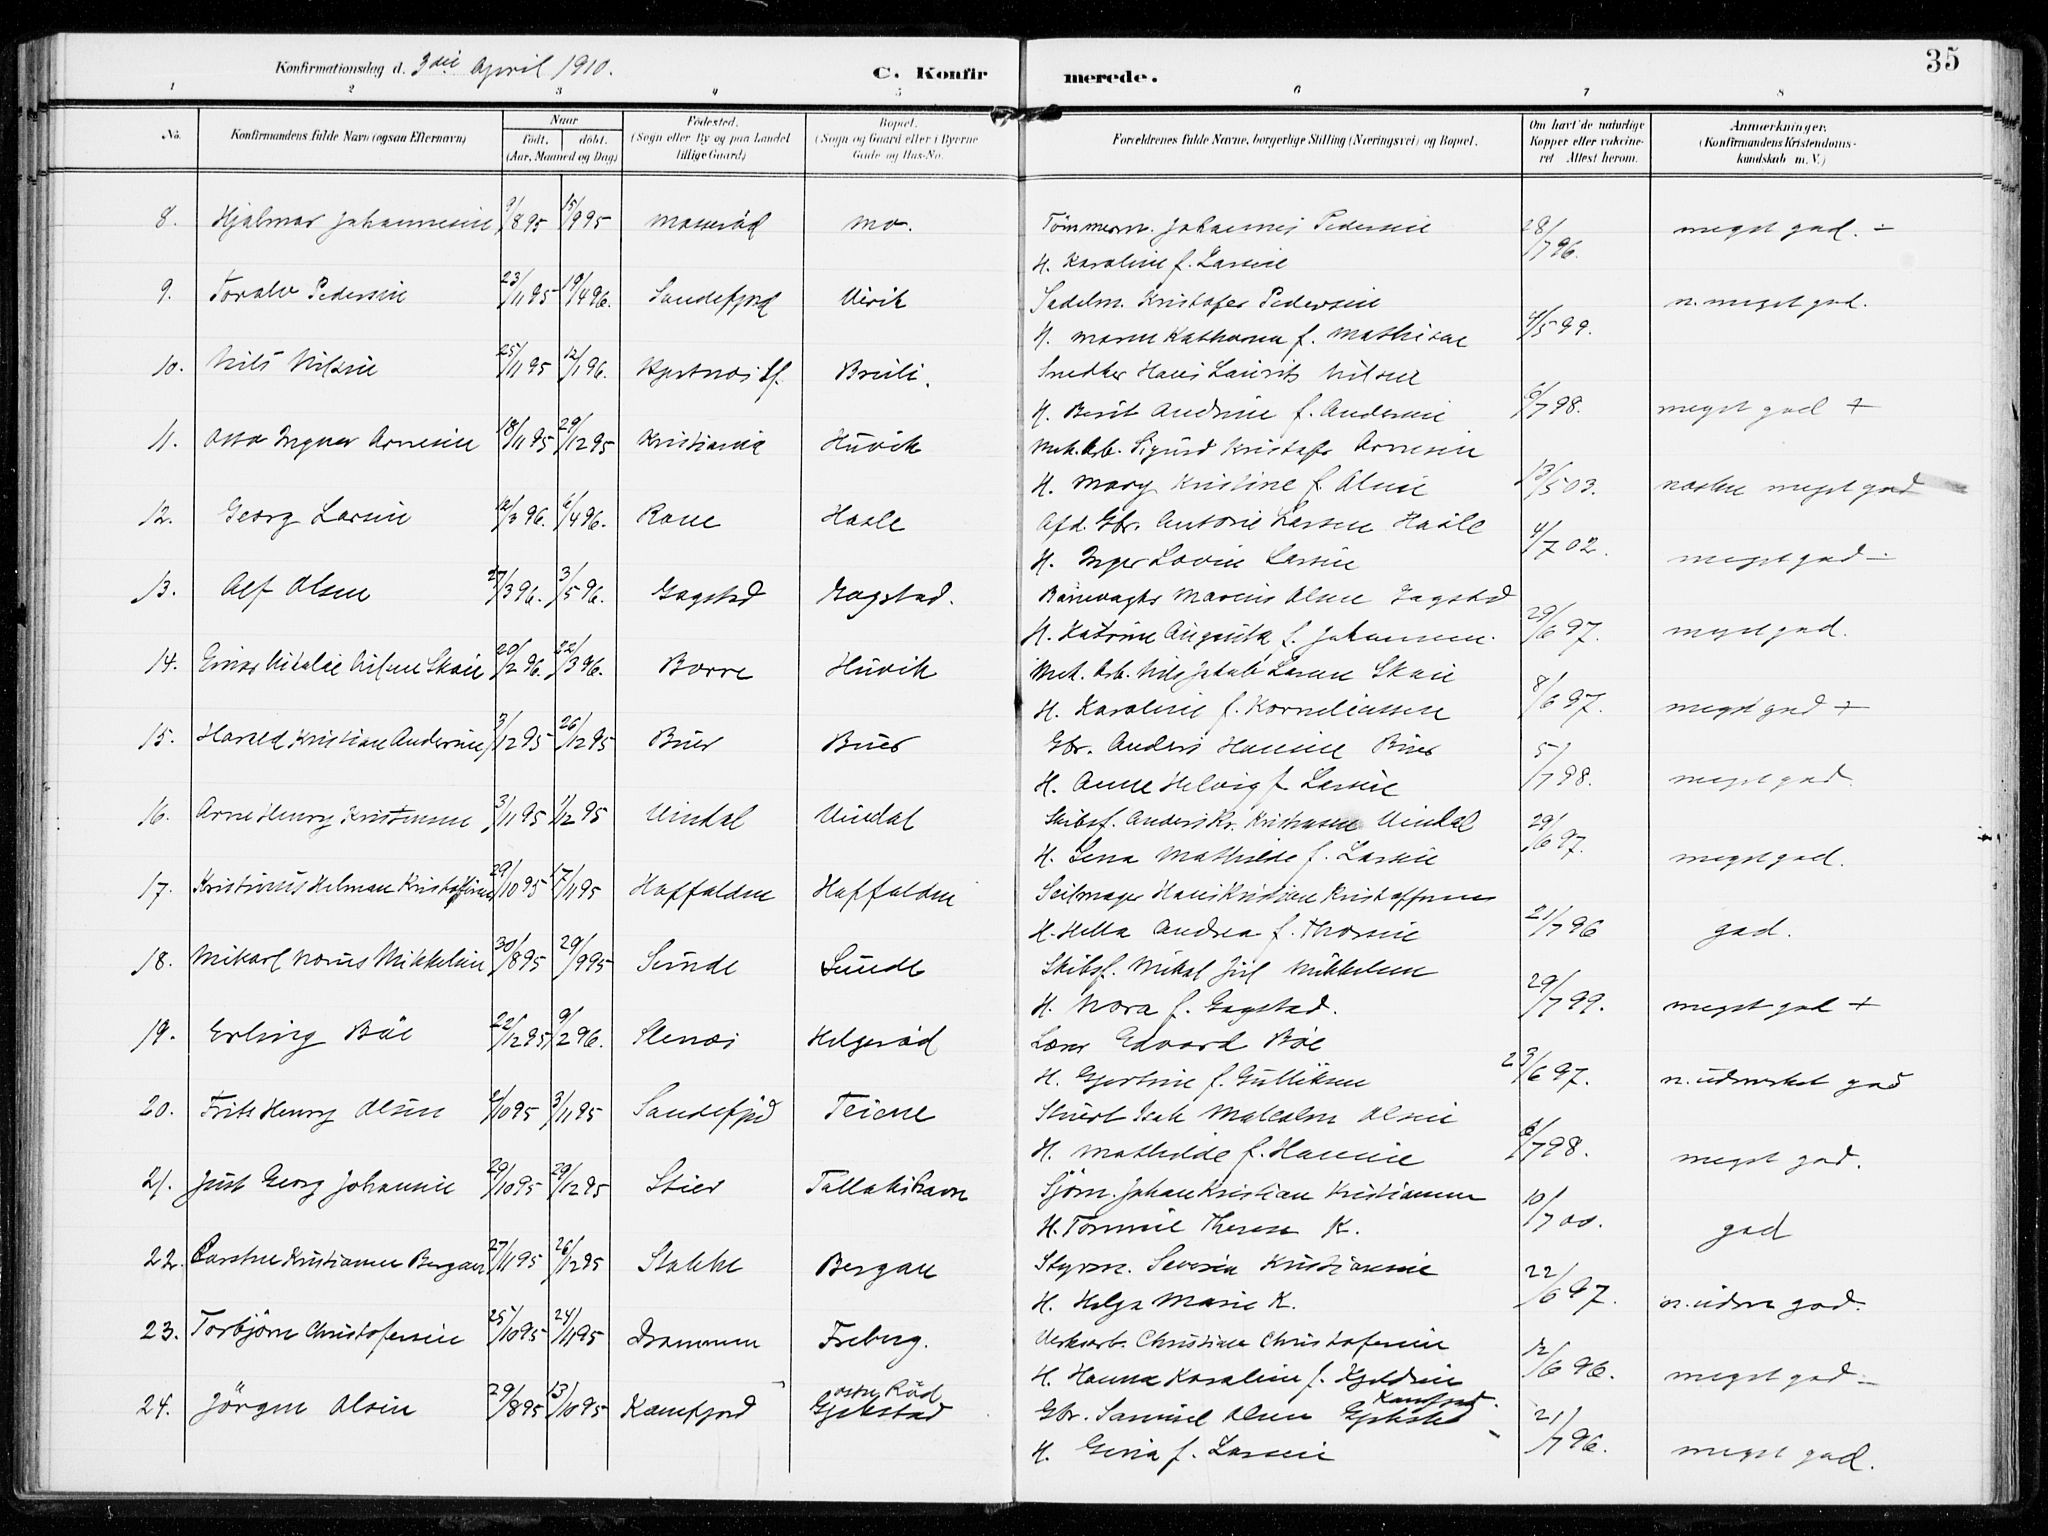 Konfirmationsdag d. 3die April 1910. C. Konfir merede. 35
1 2 3 4 5 6 7 8
No. Konfirmandens fulde Navn (ogsaa Efternavn) Naar Født. døbt. (Aar, Maaned og Dag) Fødested. (Sogn eller By og paa Landet tillige Gaard) Bopæl. (Sogn og Gaard eller i Byerne Gade og Hus-No. Forældrenes fulde Navne, borgerlige Stilling (Næringsvei) og Bopæl. Om havt de naturlige Kopper eller vakcineret Attest herom. Anmærkninger. (Konfirmandens Kristendomskundskab m. V.)
8. Hjalmar Johannesen 9/8 95 15/9 95 Mo. Tömmerm. Johannes Pedersen 28/7 96. meget god. -
H. Karoline f. Larsen
9. Toralv Pedersen 23/11 95 19/4 96. Sandefjord Virik Sadelm. Kristofer Pedersen n. meget god.
H. Maren Kathrine f. Mathisen 4/5 99.
10. Nils Nilsen 25/11 95 12/1 96. Breili. Snedker Hans Laurits Nilsen
H. Berit Andrine f. Andersen 6/7 98. meget god +
11. Otto Ingvar Arnesen 18/11 95 29/12 95 Kristiania Huvik Mek. Arb. Sigurd Kristofer Arnesen
H. Mary Kristine f. Olsen 13/5 03. næsten meget god
12. Georg Larsen 12/3 96. 6/4 96. Rane Hasle Afd. Gbr. Antonie Larsen Hasle
H. Inger Lovise Larsen 4/7 02. meget god -
13. Alf Olsen 27/3 96. 3/5 96. Gogstad Gogstad. Banevagts Marius Olsen Gogstad
H. Katrine Augusta f. Johannsen. 29/6 97. meget god.
14. Einar Nilsen Skaie 20/2 96. 22/3 96. Borre Huvik Mek. Arb. Nils Jakob Larsen Skaie
H. Karoline f. Korneliussen 8/6 97. meget god +
15. Harald Kristian Andersen 3/12 95 26/12 95 Buer Buer Gbr. Anders Hansen Buer
H. Anne Helvig f. Larsen 5/7 98. meget god.
16. Arne Henry Kristensen 3/11 95 1/12 95 Vindal Vindal Skibsf. Anders Kr. Kristensen Vindal
H. Lena Mathilde f. Larsen 29/6 97. meget god.
17. Kristinus Hilman Kristoffersen 29/10 95 17/11 95 Haffalden Haffalden Seilmager Hans Kristian Kristoffersen
H. Hella Andrea f. Thorsen 21/7 96 god.
18. Mikael Norus Mikkelsen 30/8 95 29/9 95 Sunde Sunde Skibsf. Mikal Juel Mikkelsen
H. Nora f. Gogstad. 29/7 99. meget god +
19. Erling Böe 22/12 95 9/2 96. Stenæs Helgeröd Lærer Edvard Böe
H. Gjertine f. Gulliksen 23/6 97. n. udmerket god
20. Frits Henry Olsen 2/10 95 3/11 95 Sandefjord Teiene Stuert Isak Malcolm Olsen
H. Mathilde f. Hansen 6/7 98. meget god.
21. Just Georg Johansen 29/10 95 29/12 95 Stier Tallakshavn Sjöm. Johan Kristian Kristiansen
H. Tomine Therese K. 10/7 00. god
22. Carsten Kristiansen Bergan 27/11 95 26/12 95 Stokke Bergan Styrm. Severin Kristiansen
H. Helga Marie K. 22/6 97. n. udm god.
23. Torbjörn Christofersen 25/10 95 24/11 95 Drammen Freberg. Verksarb. Christian Christofersen
H. Hanna Karoline f. Kjeldsen 12/6 96. meget god -
24. Jörgen Olsen 29/8 95 13/10 95 Kamfjord östre Röd Gjekstad Gbr. Samuel Olsen Gjekstad Kamfjord.
H. Gina f. Larsen 21/7 96. meget god.